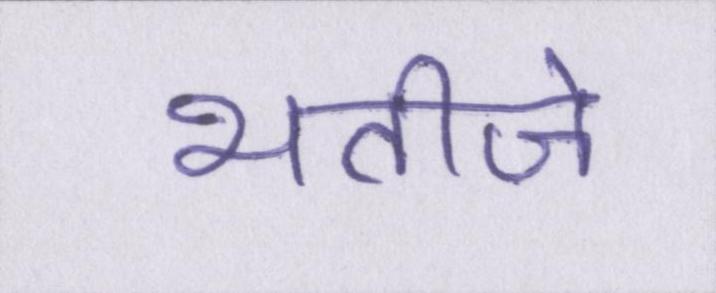 भतीजे